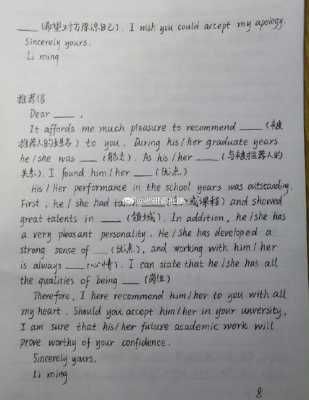 ___(希望对方原谅自己). I wish you could accept my apology.
Sincerely yours.
Li ming
推荐信
Dear ___,
It affords me much pleasure to recommend ___ (被
推荐人的姓名) to you. During his/her graduate years
he/she was ___ (职志). As his/her ___ (与被推荐人的
关系). I found him/her ___ (优点.)
His/Her performance in the school years was outstanding.
First, he/she had 或课程) and showed
great talents in ___ (领域). In addition, he/she has
a very pleasant personality. He/She has developed a
strong sense of ___ (优点), and working with him/her
is always ___ (心情). I can state that he/she has all
the qualities of being ___ (岗位)
Therefore, I here recommend him/her to you with all
my heart. Should you accept him/her in your unversity,
I am sure that his/her future academic work will
prove worthy of your confidence.
Sincerely yours.
Li ming
8